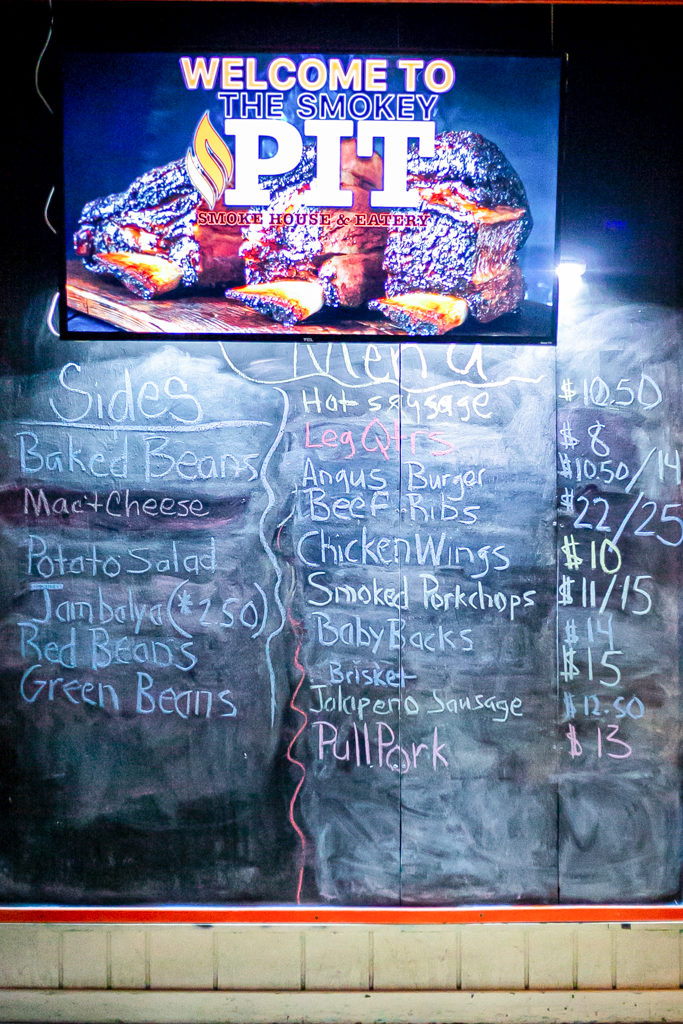 WELCOME TO
THE SMOKEY
PIT
SMOKE HOUSE & EATERY
Menu
Sides
Baked Beans
Mac+Cheese
Potato Salad
Jambalya (*2.50)
Red Beans
Green Beans
Hot sausage $10.50
Leg Qtrs $8
Angus Burger $10.50/14
Beef Ribs $22/25
Chicken Wings $10
Smoked Porkchops $11/15
Baby Backs $14
Brisket $15
Jalapeno Sausage $12.50
Pull Pork $13